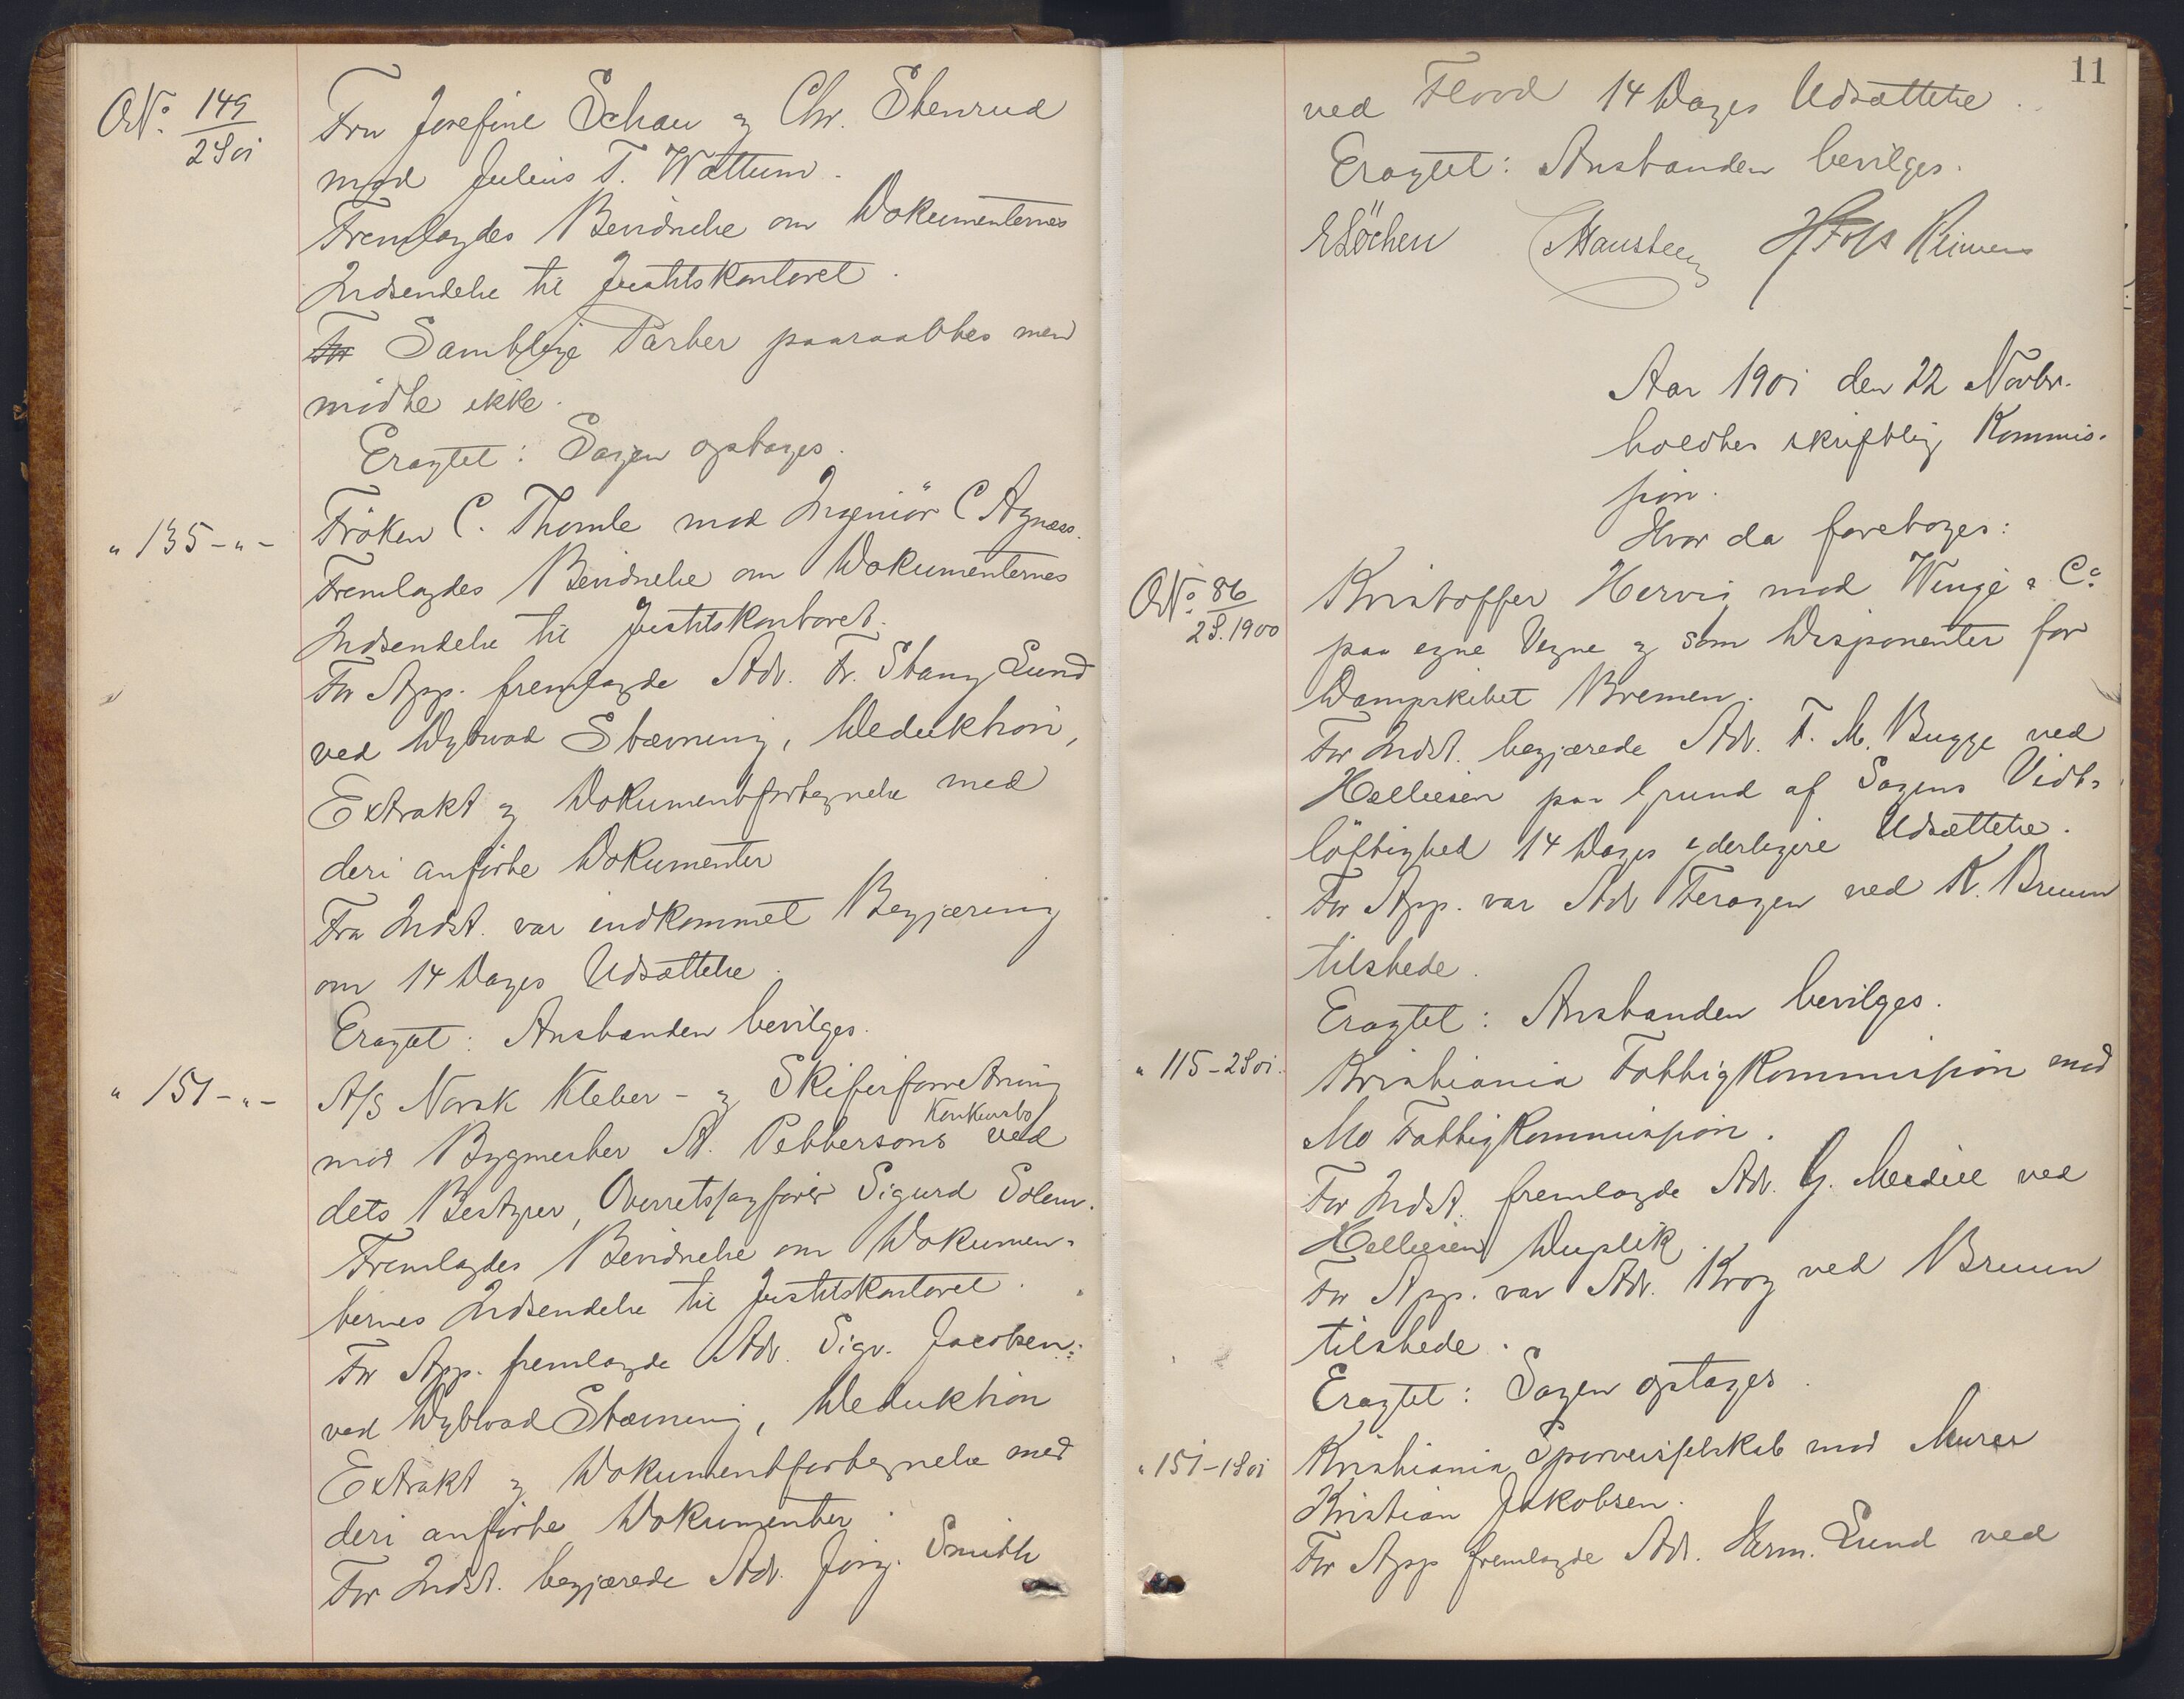 No. 149
2 S 01
Fru Josefine Schau og Chr. Stenrud
mod Julius T. Wattum.
Fremlagdes Bevidnelse om Dokumenternes
Indsendelse til Justitskontoret.
For Samtlige Parter paaraabtes men
mødte ikke.
Eragtet: Sagen optages.
" 135 - " -
Fröken C. Thomle mod Ingeniör C Agnæs.
Fremlagdes Bevidnelse om Dokumenternes
Indsendelse til Justitskontoret.
For App. fremlagde Adv. Fr. Stang Lund
ved Dybwad Stævning, Deduktion,
Extrakt og Dokumentfortegnelse med
deri anførte Dokumenter
Fra Indst. var indkommet Begjæring
om 14 Dages Udsættelse.
Eragtet: Anstanden bevilges.
" 151 - " -
A/S Norsk Kleber- og Skiferforretning
Konkursbo
mod Bygmester A. Pettersons ved
dets Bestyrer, Overretssagfører Sigurd Solem.
Fremlagdes Bevidnelse om Dokumen-
ternes Indsendelse til Justitskontoret.
For App. fremlagde Adv. Sigv. Jacobsen
ved Dybwad Stævning, Deduktion
Extrakt og Dokumentfortegnelse med
deri anførte Dokumenter.
For Indst. begjærede Adv. Jörg. Smith
11
ved Flood 14 Dages Udsættelse.
Eragtet: Anstanden bevilges.
E Löchen Hansteen Reimers
Aar 1901 den 22 Novbr.
holdtes skriftlig Kommis-
sion.
Hvor da foretoges:
No. 86
2 S. 1900
Kristoffer Hervig mod Winge & Co
paa egne Vegne og som Disponenter for
Dampskibet Bremen.
For Indst. begjærede Adv. F. M. Bugge ved
Helliesen paa Grund af Sagens Vidt-
löftighed 14 Dages yderligere Udsættelse.
For App. var Adv Feragen ved K. Bruun
tilstede.
Eragtet: Anstanden bevilges.
" 115 - 2 S 01.
Kristiania Fattigkommission mod
Mo Fattigkommission.
For Indst. fremlagde Adv. G. Meidell ved
Helliesen Duplik.
For App. var Adv. Krog ved Bruun
tilstede.
Eragtet: Sagen optages.
" 151 - 1 S 01
Kristiania Sporveisselskab mod Murer
Kristian Jakobsen.
For App fremlagde Adv. Herm. Lund ved